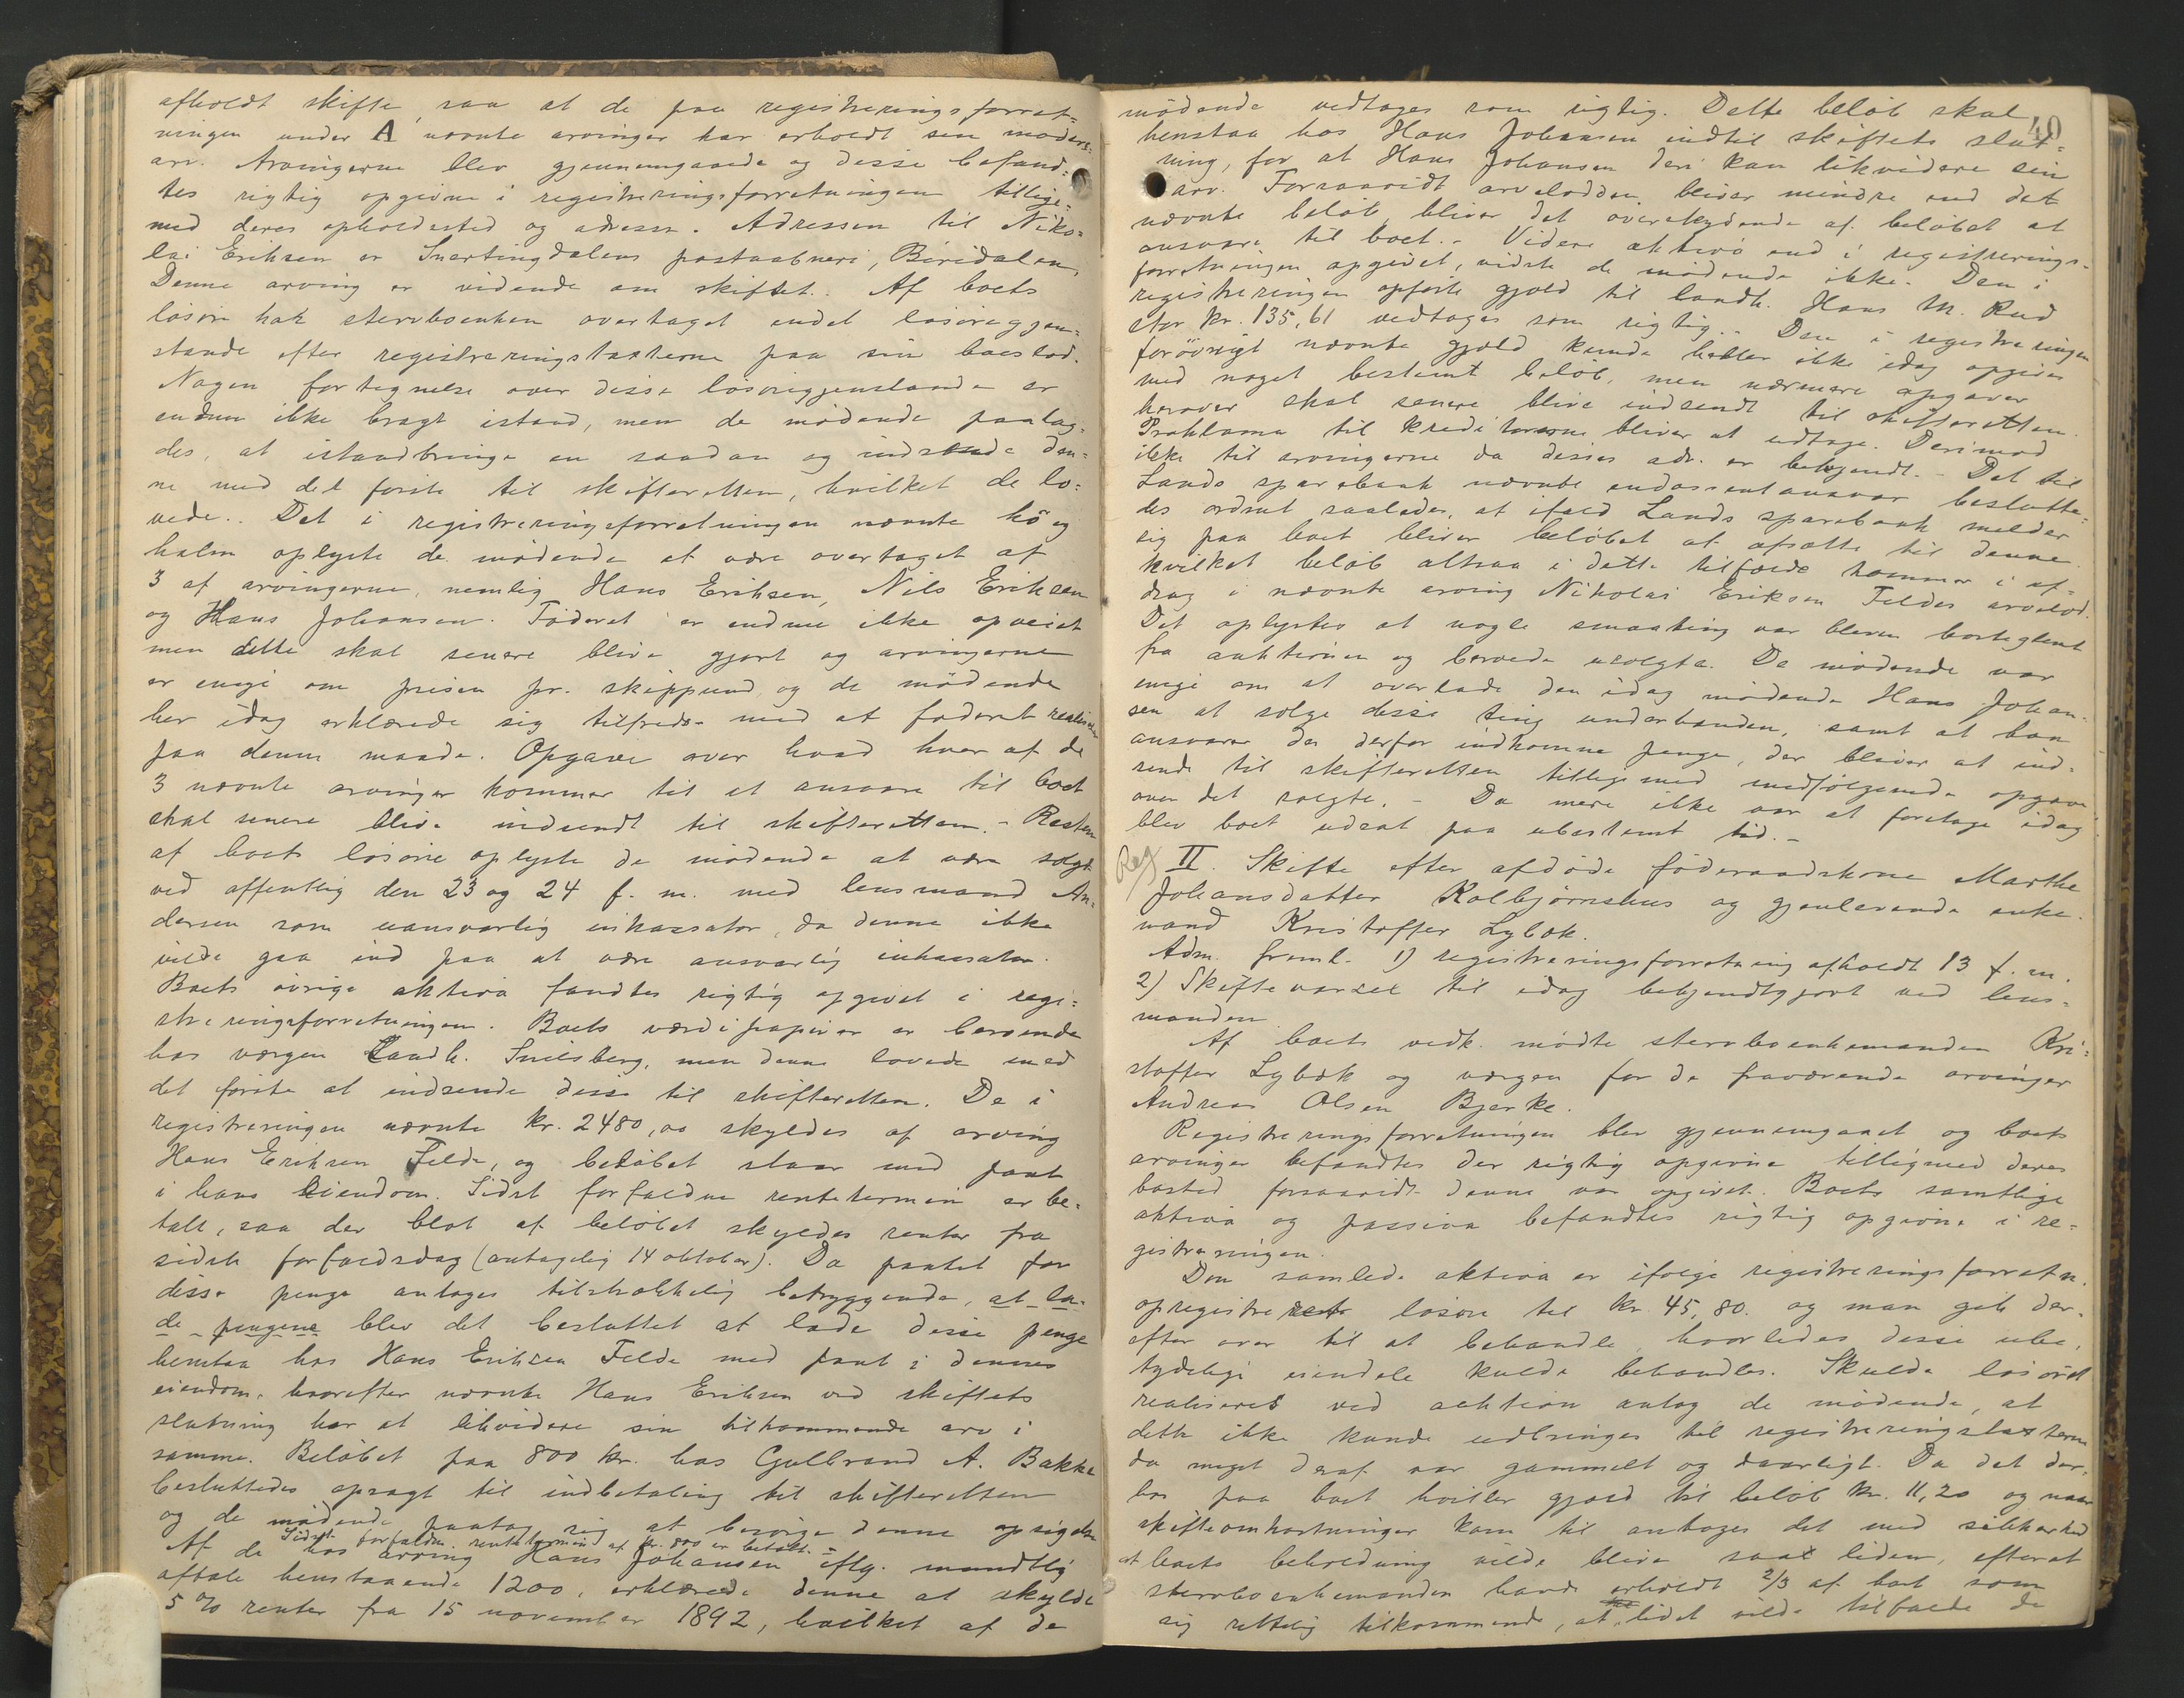 afholdt skifte, saa at de paa registreringsforret=
ningen under A nævnte arvinger har erholdt sin møders=
arv. Arvingerne blev gjennemgaaede og disse befand=
tes rigtig opgivne i registreringsforretningen tillige=
med deres opholdssted og adresse. Adressen til Niko=
lai Eriksen er Snertingdalens postaabneri, Biridalen,
Denne arving er vidende om skiftet. Af boets
løsøre hak stervboenken overtaget endel løsøregjen=
stande efter registreringstaxterne paa sin boeslod.
Nogen fortegnelse over disse løsøregjenstande er
endnu ikke bragt istand, men de mødende paalag=
des, at istandbringe en saadan og indsende den=
ne med det første til skifteretten, hvilket de lo=
vede. Det i registreringsforretningen nævnte hö og
halm oplyste de mödende at være overtaget af
3 af arvingerne, nemlig Hans Eriksen, Nils Eriksen
og Hans Johansen. Föderet er endnu ikke opveiet
men dette skal senere blive gjort og arvingerne
er enige om prisen pr. skippund og de mödende
her idag erklærede sig tilfreds med at foderet realiseres
paa denne maade. Opgave over hvad hver af de
3 nævnte arvinger kommer til at ansvare til boet
skal senere blive indsendt til skifteretten. - Resten
af boets løsøre oplyste de mödende at være solgt
ved offentlig den 23 og 24 f. m. med lensmand An=
dersen som uansvarlig inkassator, da denne ikke
vilde gaa ind paa at være ansvarlig inkassator.
Boets övrige aktiva fandtes rigtig opgivet i regi=
streringsforretningen. Boets værdipapirer er beroende
hos værgen Landh. Snilsberg, men denne lovede med
det förste at indsende disse til skifteretten. De i
registreringen nævnte kr. 2480,00 skyldes af arving
Hans Eriksen Felde, og beløbet staar med pant
i hans eiendom. Sidst forfaldne rentetermin er be=
talt, saa der blot af belöbet skyldes renter fra
sidste forfaldsdag (antagelig 14 oktober). Da pantet for
disse penge antages tilstrækkelig betryggende, at la=
de pengene blev det besluttet at lade disse penge
henstaa hos Hans Eriksen Felde med pant i dennes
eiendom, hvorefter nævnte Hans Eriksen ved skiftets
slutning har at likvidere sin tilkommende arv i
samme. Belöbet paa 800 kr. hos Gulbrand A. Bakke
besluttedes opsagt til indbetaling til skifteretten
og de mødende paatog sig at besörge denne opsigelse
Sidst forfaldne rentetermin af kr. 800 er betalt. -
Af de hos arving Hans Johansen iflg. mundtlig
aftale henstaaende 1200, erklærede denne at skylde
5 % renter fra 15 november 1892, hvilket af de
40
mödende vedtages som rigtig. Dette belöb skal
henstaa hos Hans Johansen indtil skiftets slut=
ning, for at Hans Johansen deri kan likvidere sin
arv. Forsaavidt arvelodden bliver mindre end det
nævnte belöb, bliver det overskydende af belöbet at
ansvare til boet. - Videre aktiva end i registrerings=
forretningen opgivet, vidste de mødende ikke. Den i
registreringen opförte gjæld til landh. Hans M. Rud
stor kr. 135,61 vedtages som rigtig. - Den i registreringen
forövrigt nævnte gjæld kunde heller ikke idag opgives
med noget bestemt belöb, men nærmere opgaver
herover skal senere blive indsendt til skifteretten.
Proklama til kreditorerne bliver at udtage. Derimod
ikke til arvingerne da disses adr. er bekjendt. - Det til
Lands sparebank nævnte endossentansvar beslutte=
des ordnet saaledes, at ifald Lands sparebank melder
sig paa boet bliver beløbet at afsætte til denne
hvilket belöb altsaa i dette tilfælde kommer i af=
drag i nævnte arving Nikolai Eriksen Feldes arvelod.
Det oplystes at nogle smaating var bleven bortglemt
fra auktionen og beroede usolgte. De mödende var
enige om at overlade den idag mödende Hans Johan=
sen at sælge disse ting underhaanden, samt at han
ansvarer de derfor indkomne penge, der bliver at ind=
sende til skifteretten tilligemed medfølgende opgave
over det solgte. - Da mere ikke var at foretage idag
blev boet udsat paa ubestemt tid. -
Reg II. Skifte efter afdöde föderaadskone Marthe
Johansdatter Kolbjørnshus og gjenlevende enke=
mand Kristoffer Lybæk.
Adm. freml. 1) registreringsforretning afholdt 13 f. m.
2) Skiftevarsel til idag bekjendtgjort ved lens=
manden.
Af boets vedk. mødte stervboenkemanden Kri=
stoffer Lybæk og værgen for de fraværende arvinger
Andreas Olsen Bjerke.
Registreringsforretningen blev gjennemgaaet og boets
arvinger befandtes der rigtig opgivne tilligemed deres
bosted forsaavidt denne var opgivet. Boets samtlige
aktiva og passiva befandtes rigtig opgivne i re=
gistreringen.
Den samlede aktiva er ifølge registreringsforretn.
opregistreret løsøre til kr. 45,80. og man gik der=
efter over til at behandle, hvorledes disse ube=
tydelige eiendele kulde behandles. Skulde løsöret
realiseres ved auktion antog de mödende, at
dette ikke kunde udbringes til registreringstaxterne
da meget deraf var gammelt og daarligt. Da det der=
hos paa boet hviler gjæld til beløb kr. 11,20 og naar
skifteomkostninger kom til antages det med sikkerhed
at boets beholdning vilde blive saa liden, efterat
stervboenkemanden havde erholdt 2/3 af boet som
sig rettelig tilkommende, at lidet vilde tilfalde de